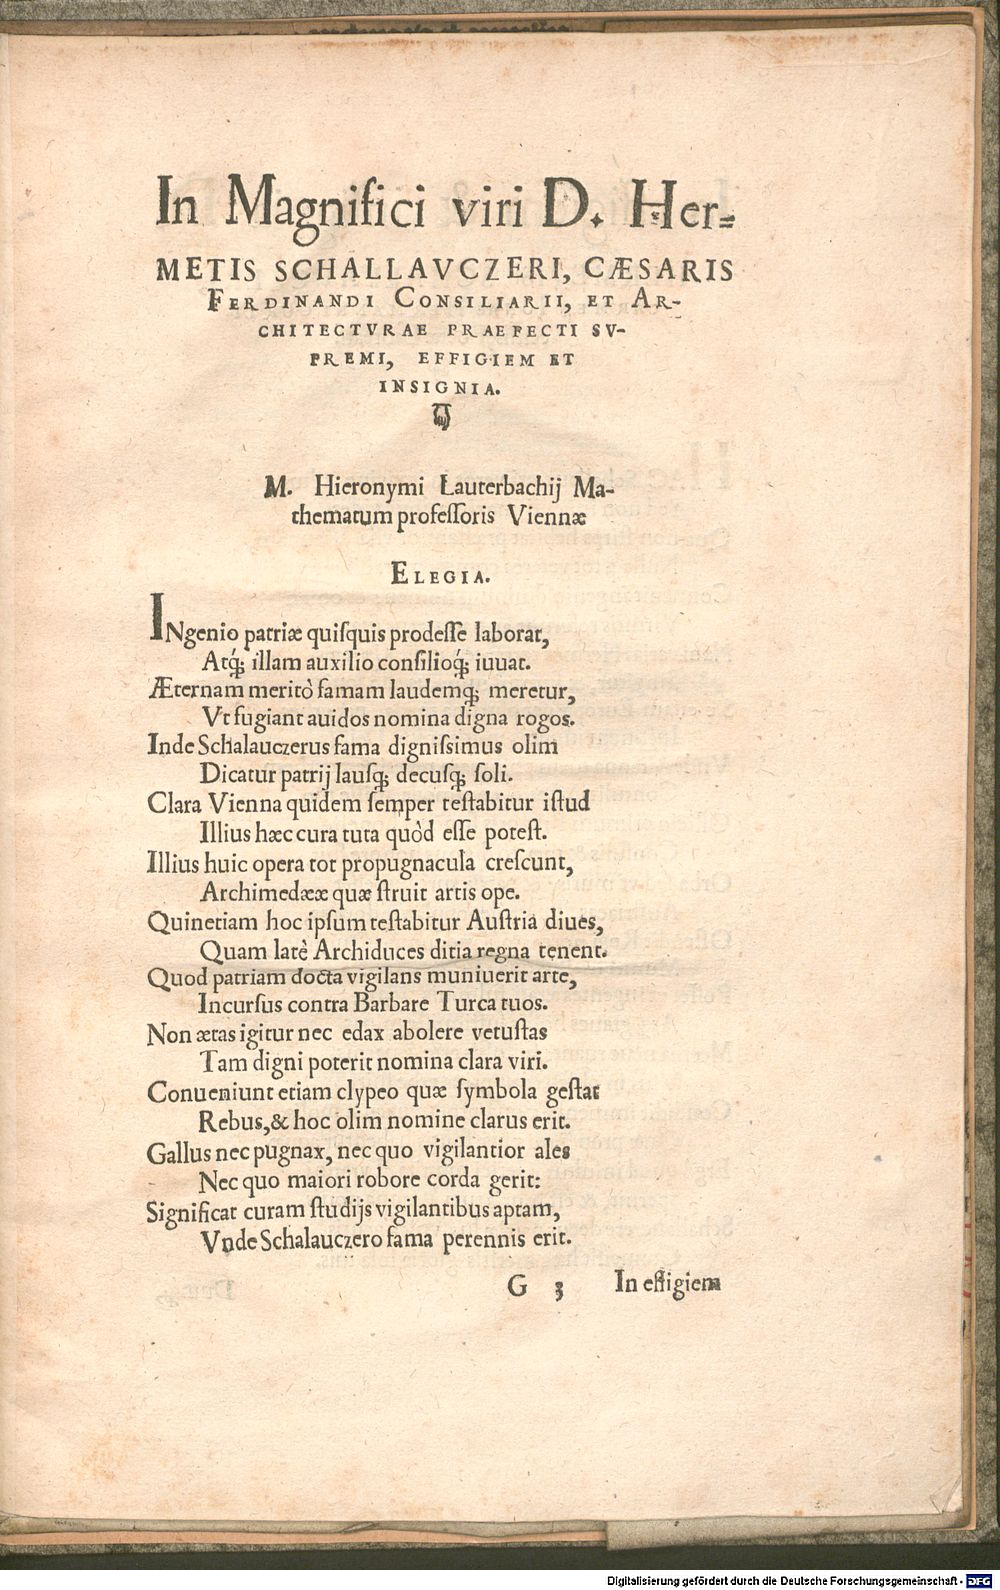 In Magnifici viri D. Her=
METIS SCHALLAVCZERI, CÆSARIS
FERDINANDI CONSILIARII, ET AR-
CHITECTVRAE PRAEFECTI SV-
PREMI, EFFIGIEM ET
INSIGNIA.
M. Hieronymi Lauterbachij Ma-
thematum professoris Viennæ
ELEGIA.
INgenio patriæ quiſquis prodeſſe laborat,
Atq́; illam auxilio consilioq́; iuuat.
Æternam meritò famam laudemq́; meretur,
Vt fugiant auidos nomina digna rogos.
Inde Schalauczerus fama digniſsimus olim
Dicatur patrij lauſq́; decuſq́; ſoli.
Clara Vienna quidem ſemper teſtabitur iſtud
Illius hæc cura tuta quòd eſſe poteſt.
Illius huic opera tot propugnacula creſcunt,
Archimedææ quæ ſtruit artis ope.
Quinetiam hoc ipſum teſtabitur Auſtria diues,
Quam latè Archiduces ditia regna tenent.
Quod patriam docta vigilans muniuerit arte,
Incurſus contra Barbare Turca tuos.
Non ætas igitur nec edax abolere vetuſtas
Tam digni poterit nomina clara viri.
Conueniunt etiam clypeo quæ ſymbola geſtat
Rebus, & hoc olim nomine clarus erit.
Gallus nec pugnax, nec quo vigilantior ales
Nec quo maiori robore corda gerit:
Significat curam ſtudijs vigilantibus aptam,
Vnde Schalauczero fama perennis erit.
G 3 In effigiem
Digitalisierung gefördert durch die Deutsche Forschungsgemeinschaft - DFG